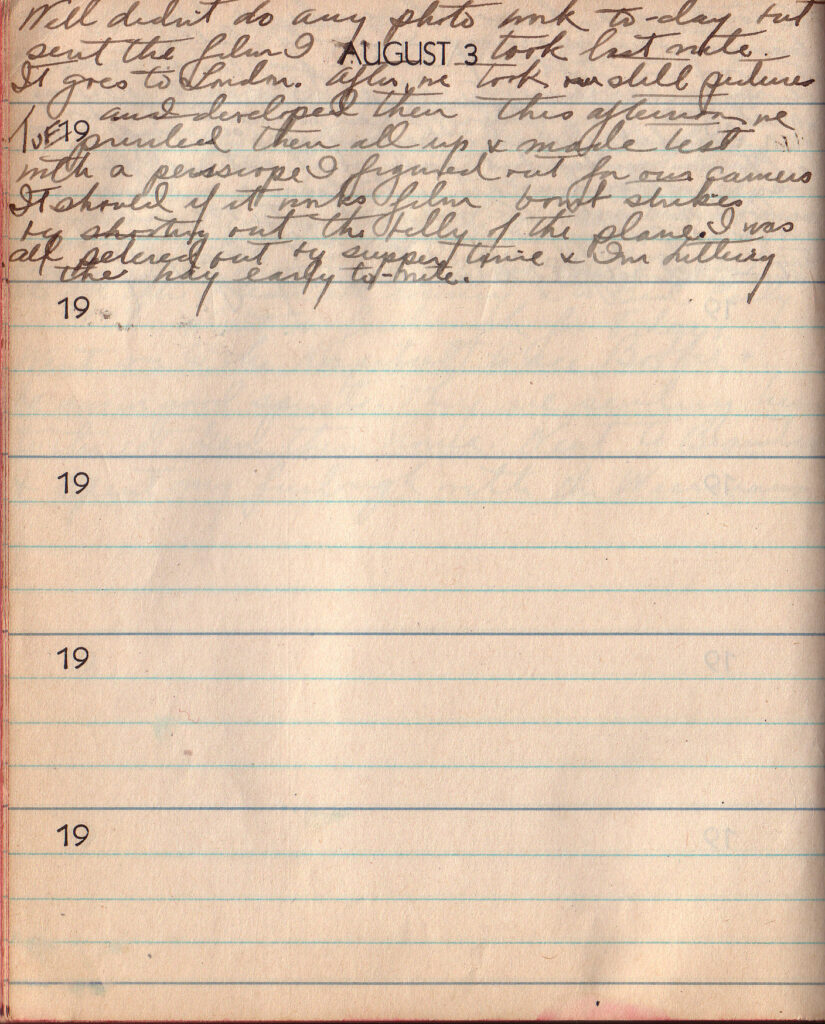 Well didn't do any photo work to-day but
sent the film I took last nite.
AUGUST 3
It goes to London. After we took our still pictures
and developed them this afternoon we
TUE 19
printed them all up & made test
with a periscope I figured out for our camera
It should if it works film bomb strikes
by shooting out the belly of the plane. I was
all petered out by supper time & I'm hitting
the hay early to-nite.
19
19
19
19